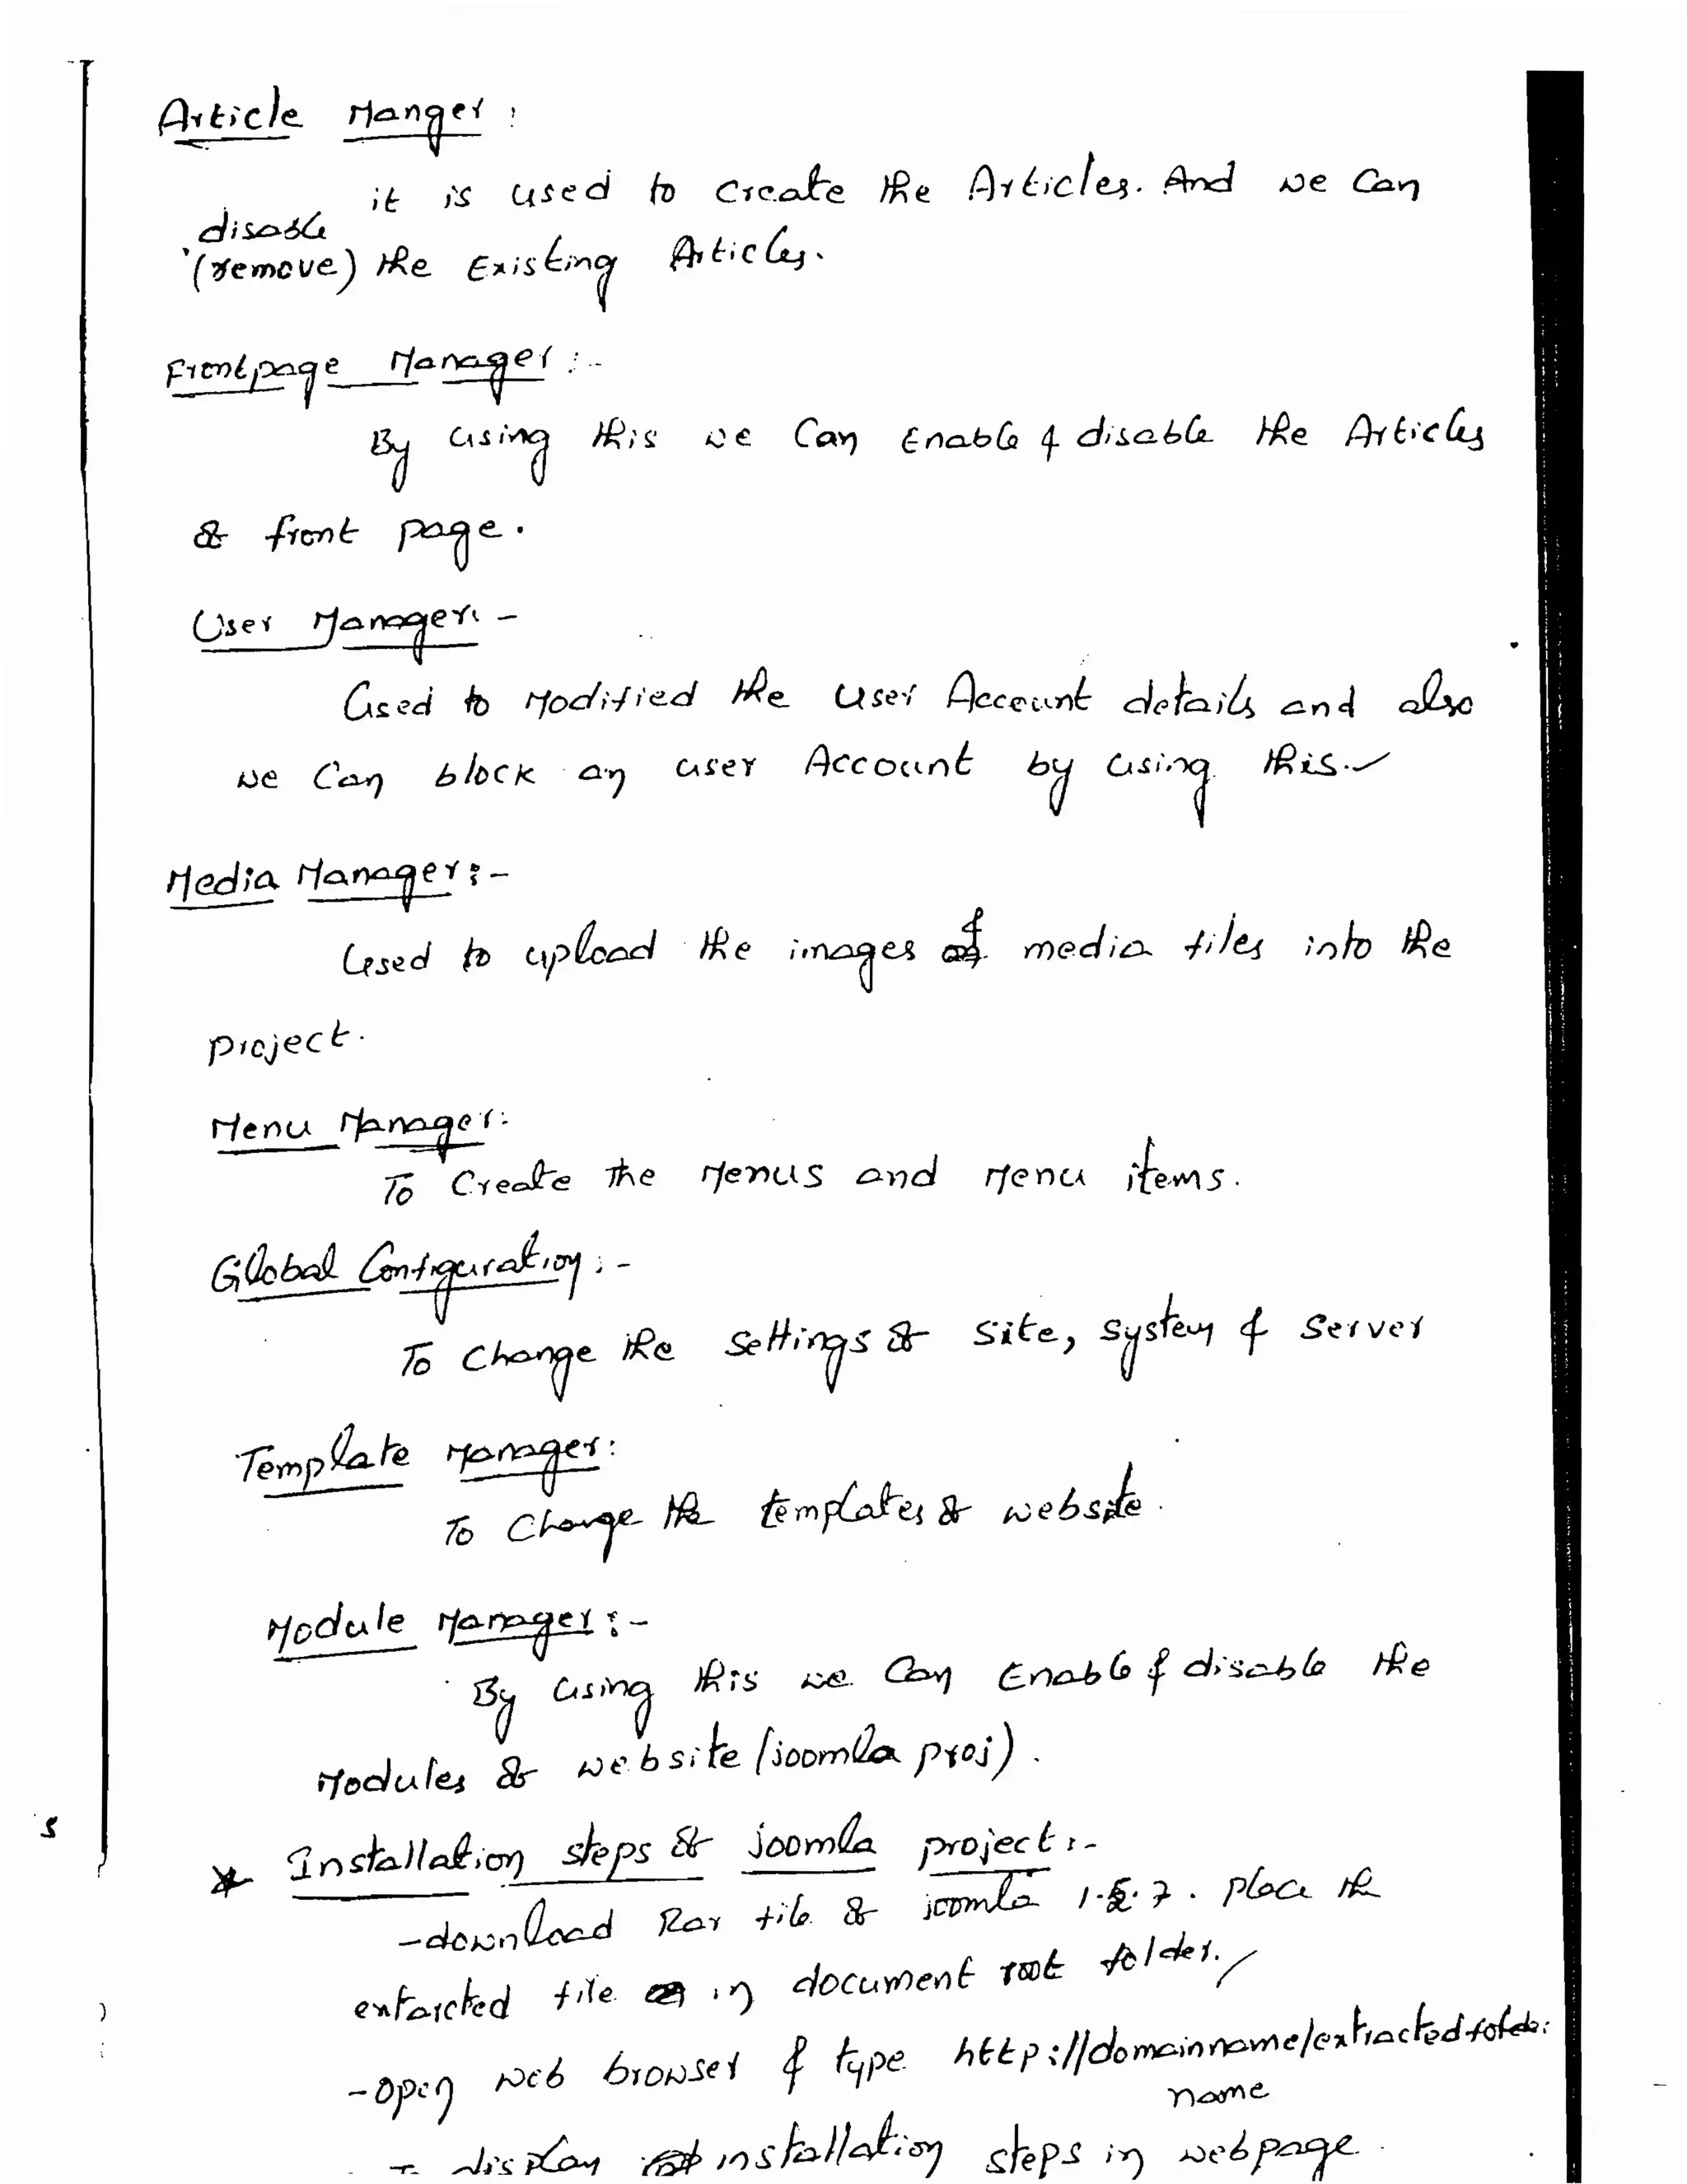 Article Manger :
it is used to create the Articles. And we can
disable
(remove) the Existing Articles.
Frontpage Manager :-
By using this we can Enable & disable the Articles
of front page.
User Manager: -
Used to Modified the user Account details and also
we can block an user Account by using this.
Media Manager: -
Used to upload the images & media files into the
project.
Menu Manager:
To Create The Menus and Menu items.
Global Configuration: -
To Change the Settings of Site, System & Server
Template Manager:
To Change the templates of website.
Module Manager: -
By using this we Can Enable & disable the
Modules of website (joomla proj).
* Installation steps of joomla project: -
- download Rar file of joomla 1.5.7. place the
extarcted file in document root folder.
- open web browser & type http://domainname/extractedfolder
name
- display installation steps in webpage.
s